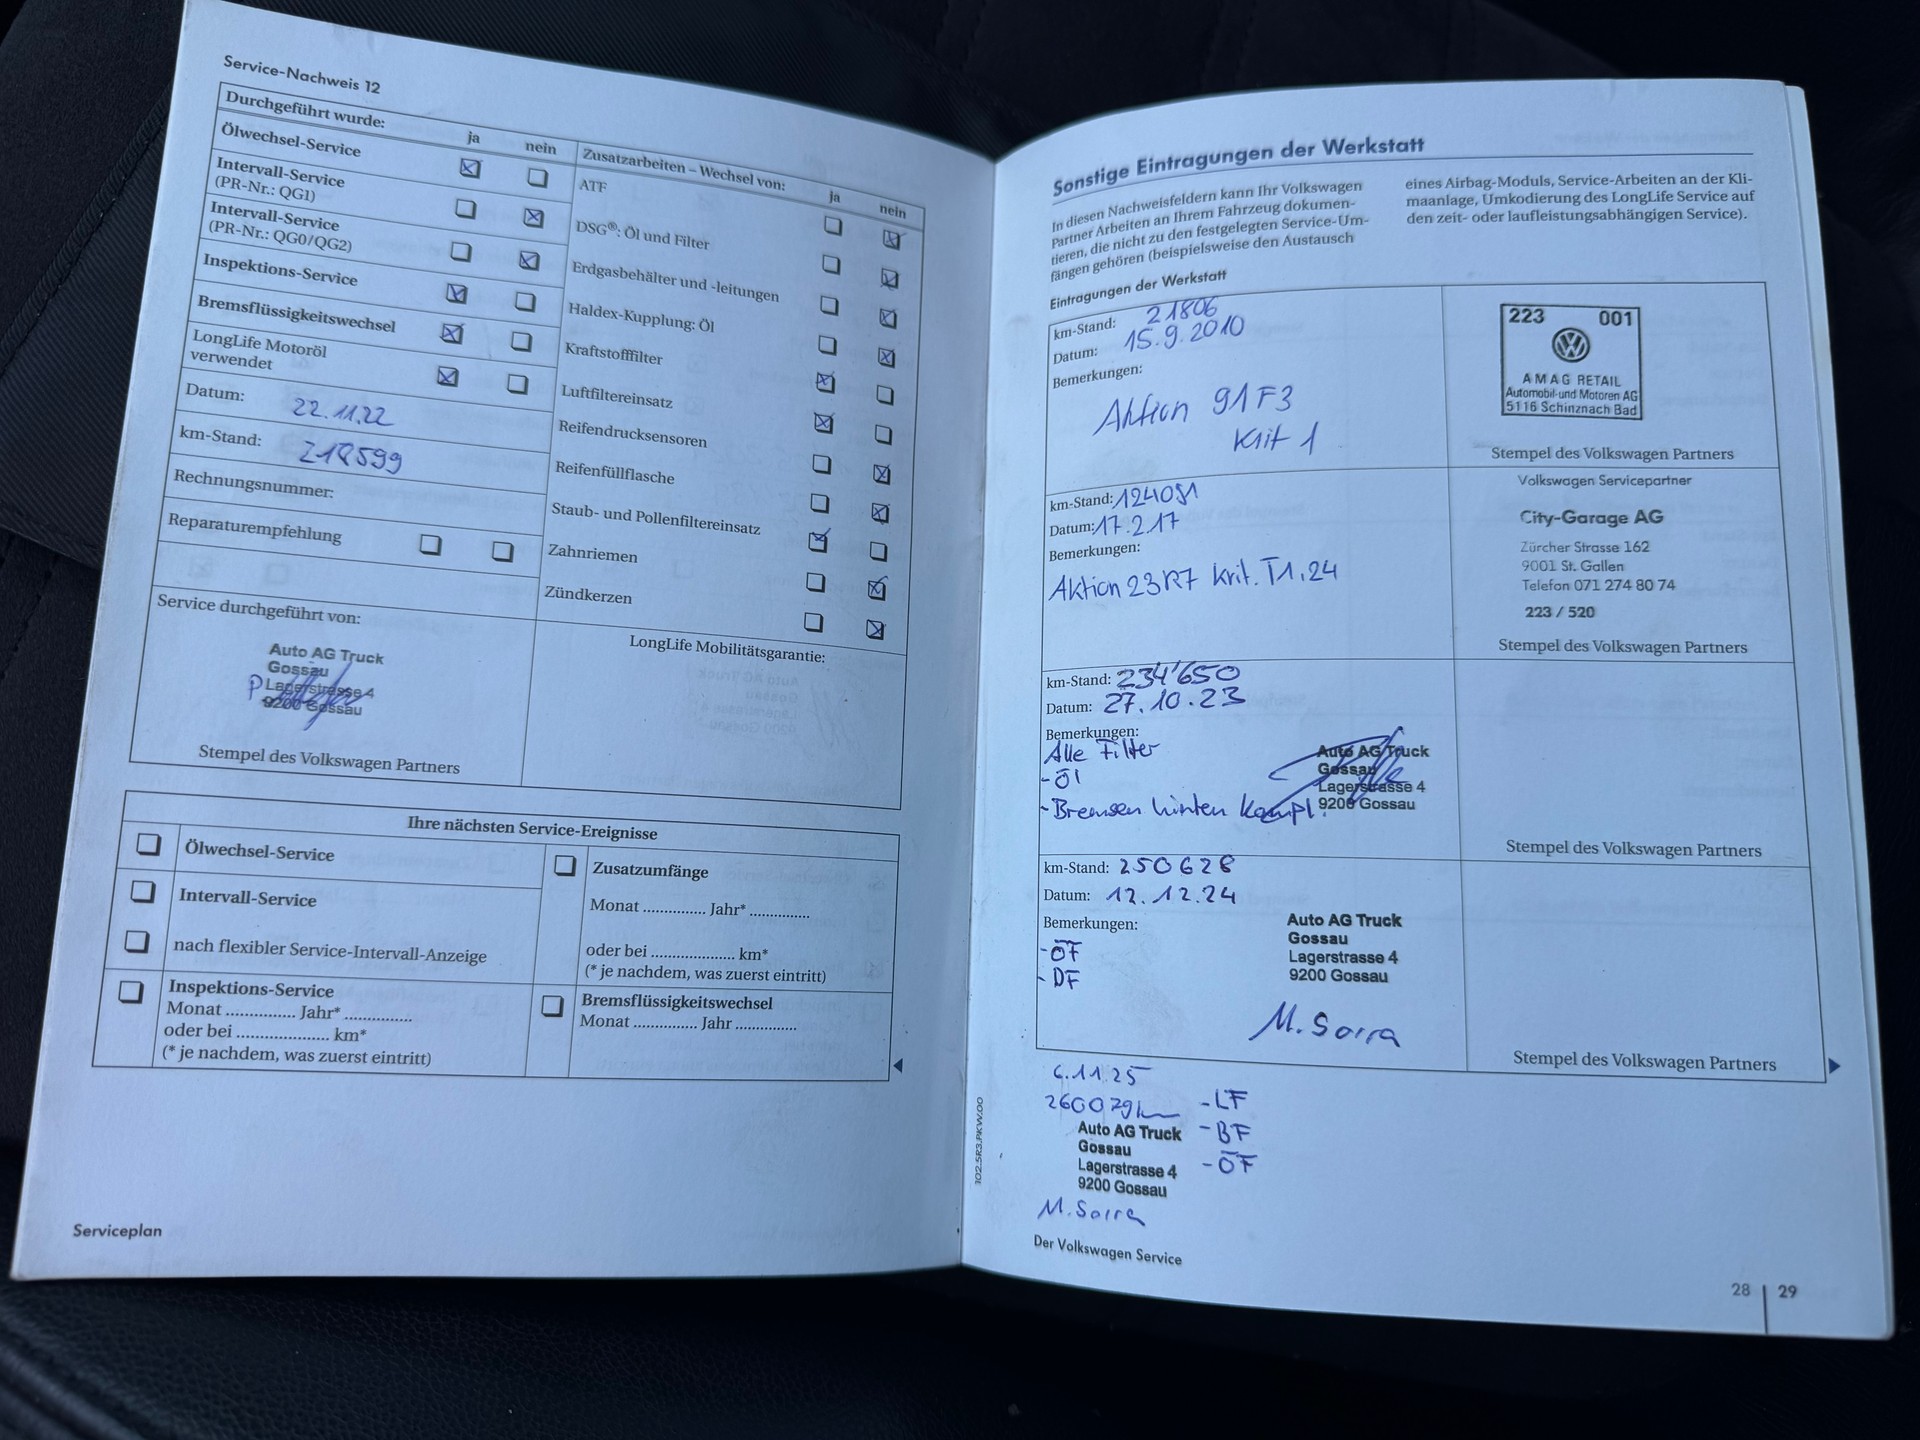 Service-Nachweis 12
Durchgeführt wurde:
ja
nein
Ölwechsel-Service
Intervall-Service
(PR-Nr.: QG1)
Intervall-Service
(PR-Nr.: QG0/QG2)
Inspektions-Service
Bremsflüssigkeitswechsel
LongLife Motoröl
verwendet
Datum: 22.11.22
km-Stand: 218599
Rechnungsnummer:
Reparaturempfehlung
Service durchgeführt von:
Auto AG Truck
Gossau
Lagerstrasse 4
9200 Gossau
Stempel des Volkswagen Partners
Zusatzarbeiten – Wechsel von:
ja
nein
ATF
DSG®: Öl und Filter
Erdgasbehälter und -leitungen
Haldex-Kupplung: Öl
Kraftstofffilter
Luftfiltereinsatz
Reifendrucksensoren
Reifenfüllflasche
Staub- und Pollenfiltereinsatz
Zahnriemen
Zündkerzen
LongLife Mobilitätsgarantie:
Ihre nächsten Service-Ereignisse
Ölwechsel-Service
Intervall-Service
nach flexibler Service-Intervall-Anzeige
Inspektions-Service
Monat ............... Jahr* ...............
oder bei .................... km*
(* je nachdem, was zuerst eintritt)
Zusatzumfänge
Monat .............. Jahr* .............
oder bei .................. km*
(* je nachdem, was zuerst eintritt)
Bremsflüssigkeitswechsel
Monat .............. Jahr .............
Serviceplan
Sonstige Eintragungen der Werkstatt
In diesen Nachweisfeldern kann Ihr Volkswagen
Partner Arbeiten an Ihrem Fahrzeug dokumen-
tieren, die nicht zu den festgelegten Service-Um-
fängen gehören (beispielsweise den Austausch
eines Airbag-Moduls, Service-Arbeiten an der Kli-
maanlage, Umkodierung des LongLife Service auf
den zeit- oder laufleistungsabhängigen Service).
Eintragungen der Werkstatt
km-Stand: 21806
Datum: 15.9.2010
Bemerkungen:
Aktion 91F3
Krit 1
223 001
AMAG RETAIL
Automobil-und Motoren AG
5116 Schinznach Bad
Stempel des Volkswagen Partners
km-Stand: 124051
Datum: 17.2.17
Bemerkungen:
Aktion 23R7 Krit. T1.24
Volkswagen Servicepartner
City-Garage AG
Zürcher Strasse 162
9001 St. Gallen
Telefon 071 274 80 74
223 / 520
Stempel des Volkswagen Partners
km-Stand: 234'650
Datum: 27.10.23
Bemerkungen:
Alle Filter
- Öl
- Bremsen hinten kompl.
Auto AG Truck
Gossau
Lagerstrasse 4
9200 Gossau
Stempel des Volkswagen Partners
km-Stand: 250628
Datum: 12.12.24
Bemerkungen:
- ÖF
- DF
Auto AG Truck
Gossau
Lagerstrasse 4
9200 Gossau
M. Sorra
Stempel des Volkswagen Partners
6.11.25
260079km
Auto AG Truck
Gossau
Lagerstrasse 4
9200 Gossau
M. Sorra
- LF
- BF
- ÖF
Der Volkswagen Service
102.5R3.PKW.00
28 | 29